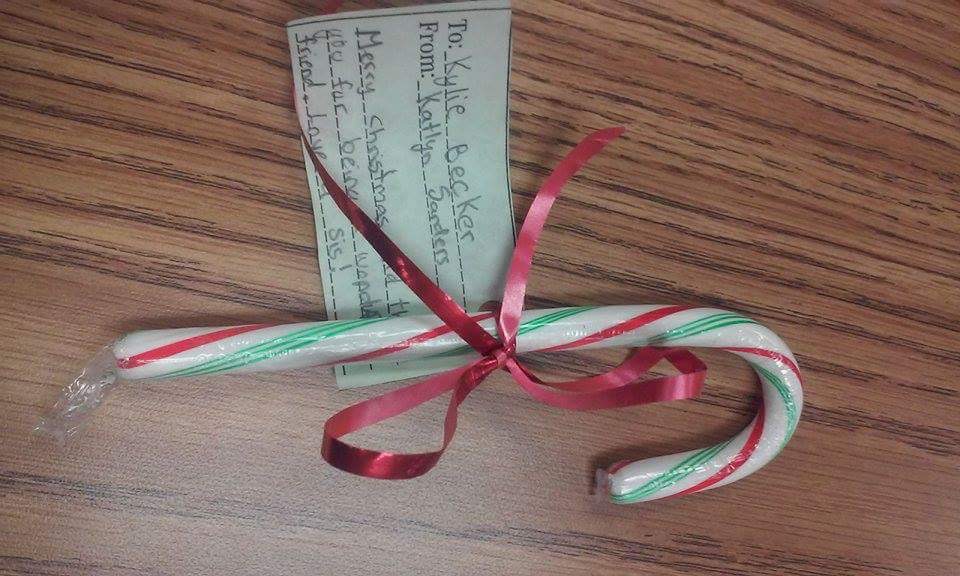 To: Kylie Becker
From: Katlyn Sanders
Merry Christmas
you for being
friend. Love sis!